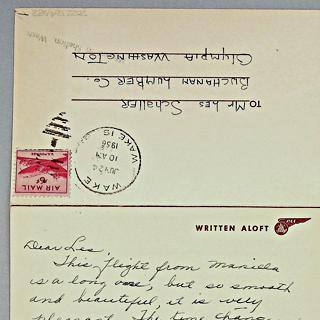 TO Mr Les Schaller
Buchanan Lumber Co.
Olympia Washington
WAKE IS.
JUN 24
10 AM
1958
WAKE
AIR MAIL
6¢
WRITTEN ALOFT
Dear Les,
This flight from Manilla
is a long one, but, so smooth
and beautiful, it is very
pleasant. The time change